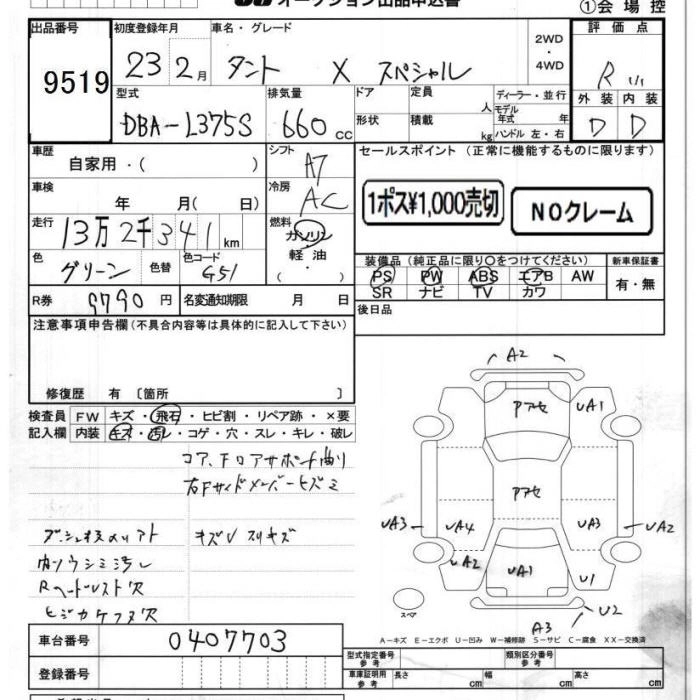 オークション出品申込書 ①会場控
出品番号 初度登録年月 車名・グレード 2WD・4WD 評価点
9519 23 2月 タント X スペシャル R
型式 排気量 ドア 定員 人 ディーラー・並行 外装 内装
DBA-L375S 660cc 形状 積載 kg モデル年式 年 ハンドル 左・右 D D
車歴 シフト セールスポイント(正常に機能するものに限ります)
自家用・( ) A7
車検 冷房 1ポス¥1,000売切 NOクレーム
年 月( 日) AC
走行 燃料
13万2千341km ガソリン
軽油
・( )
色 グリーン 色替 色コード G51
装備品(純正品に限り○をつけてください) 新車保証書
PS PW ABS エアB AW 有・無
SR ナビ TV カワ
R券 9790円 名変通知期限 月 日 後日品
注意事項申告欄(不具合内容等は具体的に記入して下さい)
修復歴 有 〔箇所 〕
検査員 FW キズ・飛石・ヒビ割・リペア跡・×要
記入欄 内装 キズ・汚レ・コゲ・穴・スレ・キレ・破レ
コア、Fロアサポート曲り
右Fサイドメンバーヒズミ
キズVスリキズ
Rヘードレスト穴
A2
Pアセ UA1
Pアセ
UA3 UA4 UA3 UA2
UA2 UA1 U1
U2
A3
スペア
A-キズ E-エクボ U-凹み W-補修跡 S-サビ C-腐食 XX-交換済
車台番号 0407703 型式指定番号 参考 類別区分番号 参考
登録番号 車庫証明用 参考 長さ cm 幅 cm 高さ cm